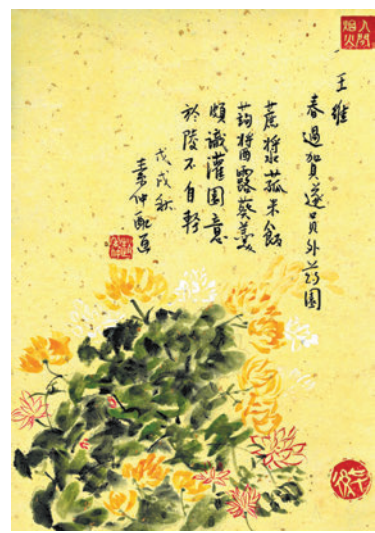 人間烟火
王維
春過賀遂員外药園
蔗漿菰米飯
蒟醬露葵羹
頗識灌園意
於陵不自輕
戊戌秋
素仲配画